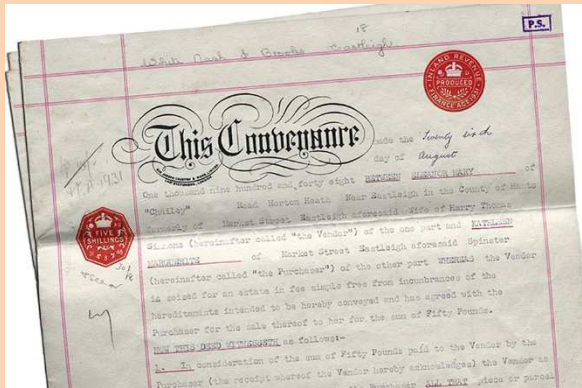 18
White Nash & Brooks Eastleigh
P.S.
INLAND REVENUE
PRODUCED
FINANCE ACT 1931
This Conveyance made the Twenty sixth
day of August
One thousand nine hundred and forty eight BETWEEN ELEANOR MARY of
"Chailey" Road Horton Heath Near Eastleigh in the County of Hants
formerly of Market Street Eastleigh aforesaid Wife of Harry Thomas
FIVE
SHILLINGS
(hereinafter called "the Vendor") of the one part and KATHLEEN
MARGUERITE of Market Street Eastleigh aforesaid Spinster
(hereinafter called "the Purchaser") of the other part WHEREAS the Vendor
is seized for an estate in fee simple free from incumbrances of the
hereditaments intended to be hereby conveyed and has agreed with the
Purchaser for the sale thereof to her for the sum of Fifty Pounds.
NOW THIS DEED WITNESSETH as follows:-
1. In consideration of the sum of Fifty Pounds paid to the Vendor by the
Purchaser (the receipt whereof the Vendor hereby acknowledges) the Vendor as
the Purchaser ALL THAT piece or parcel